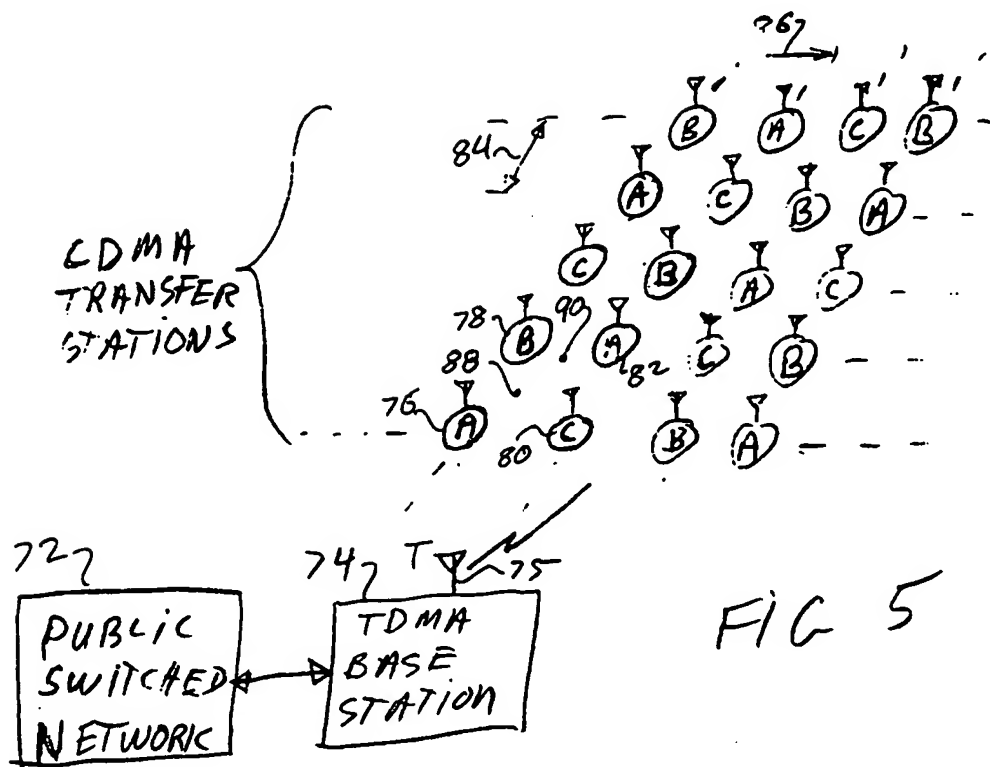 86
B A C B
84
A C B A
CDMA
TRANSFER
STATIONS
C B A C
78 B 90 A 82 C B
88
76 A 80 C B A
72
74 T 75
PUBLIC
SWITCHED
NETWORK
TDMA
BASE
STATION
FIG 5